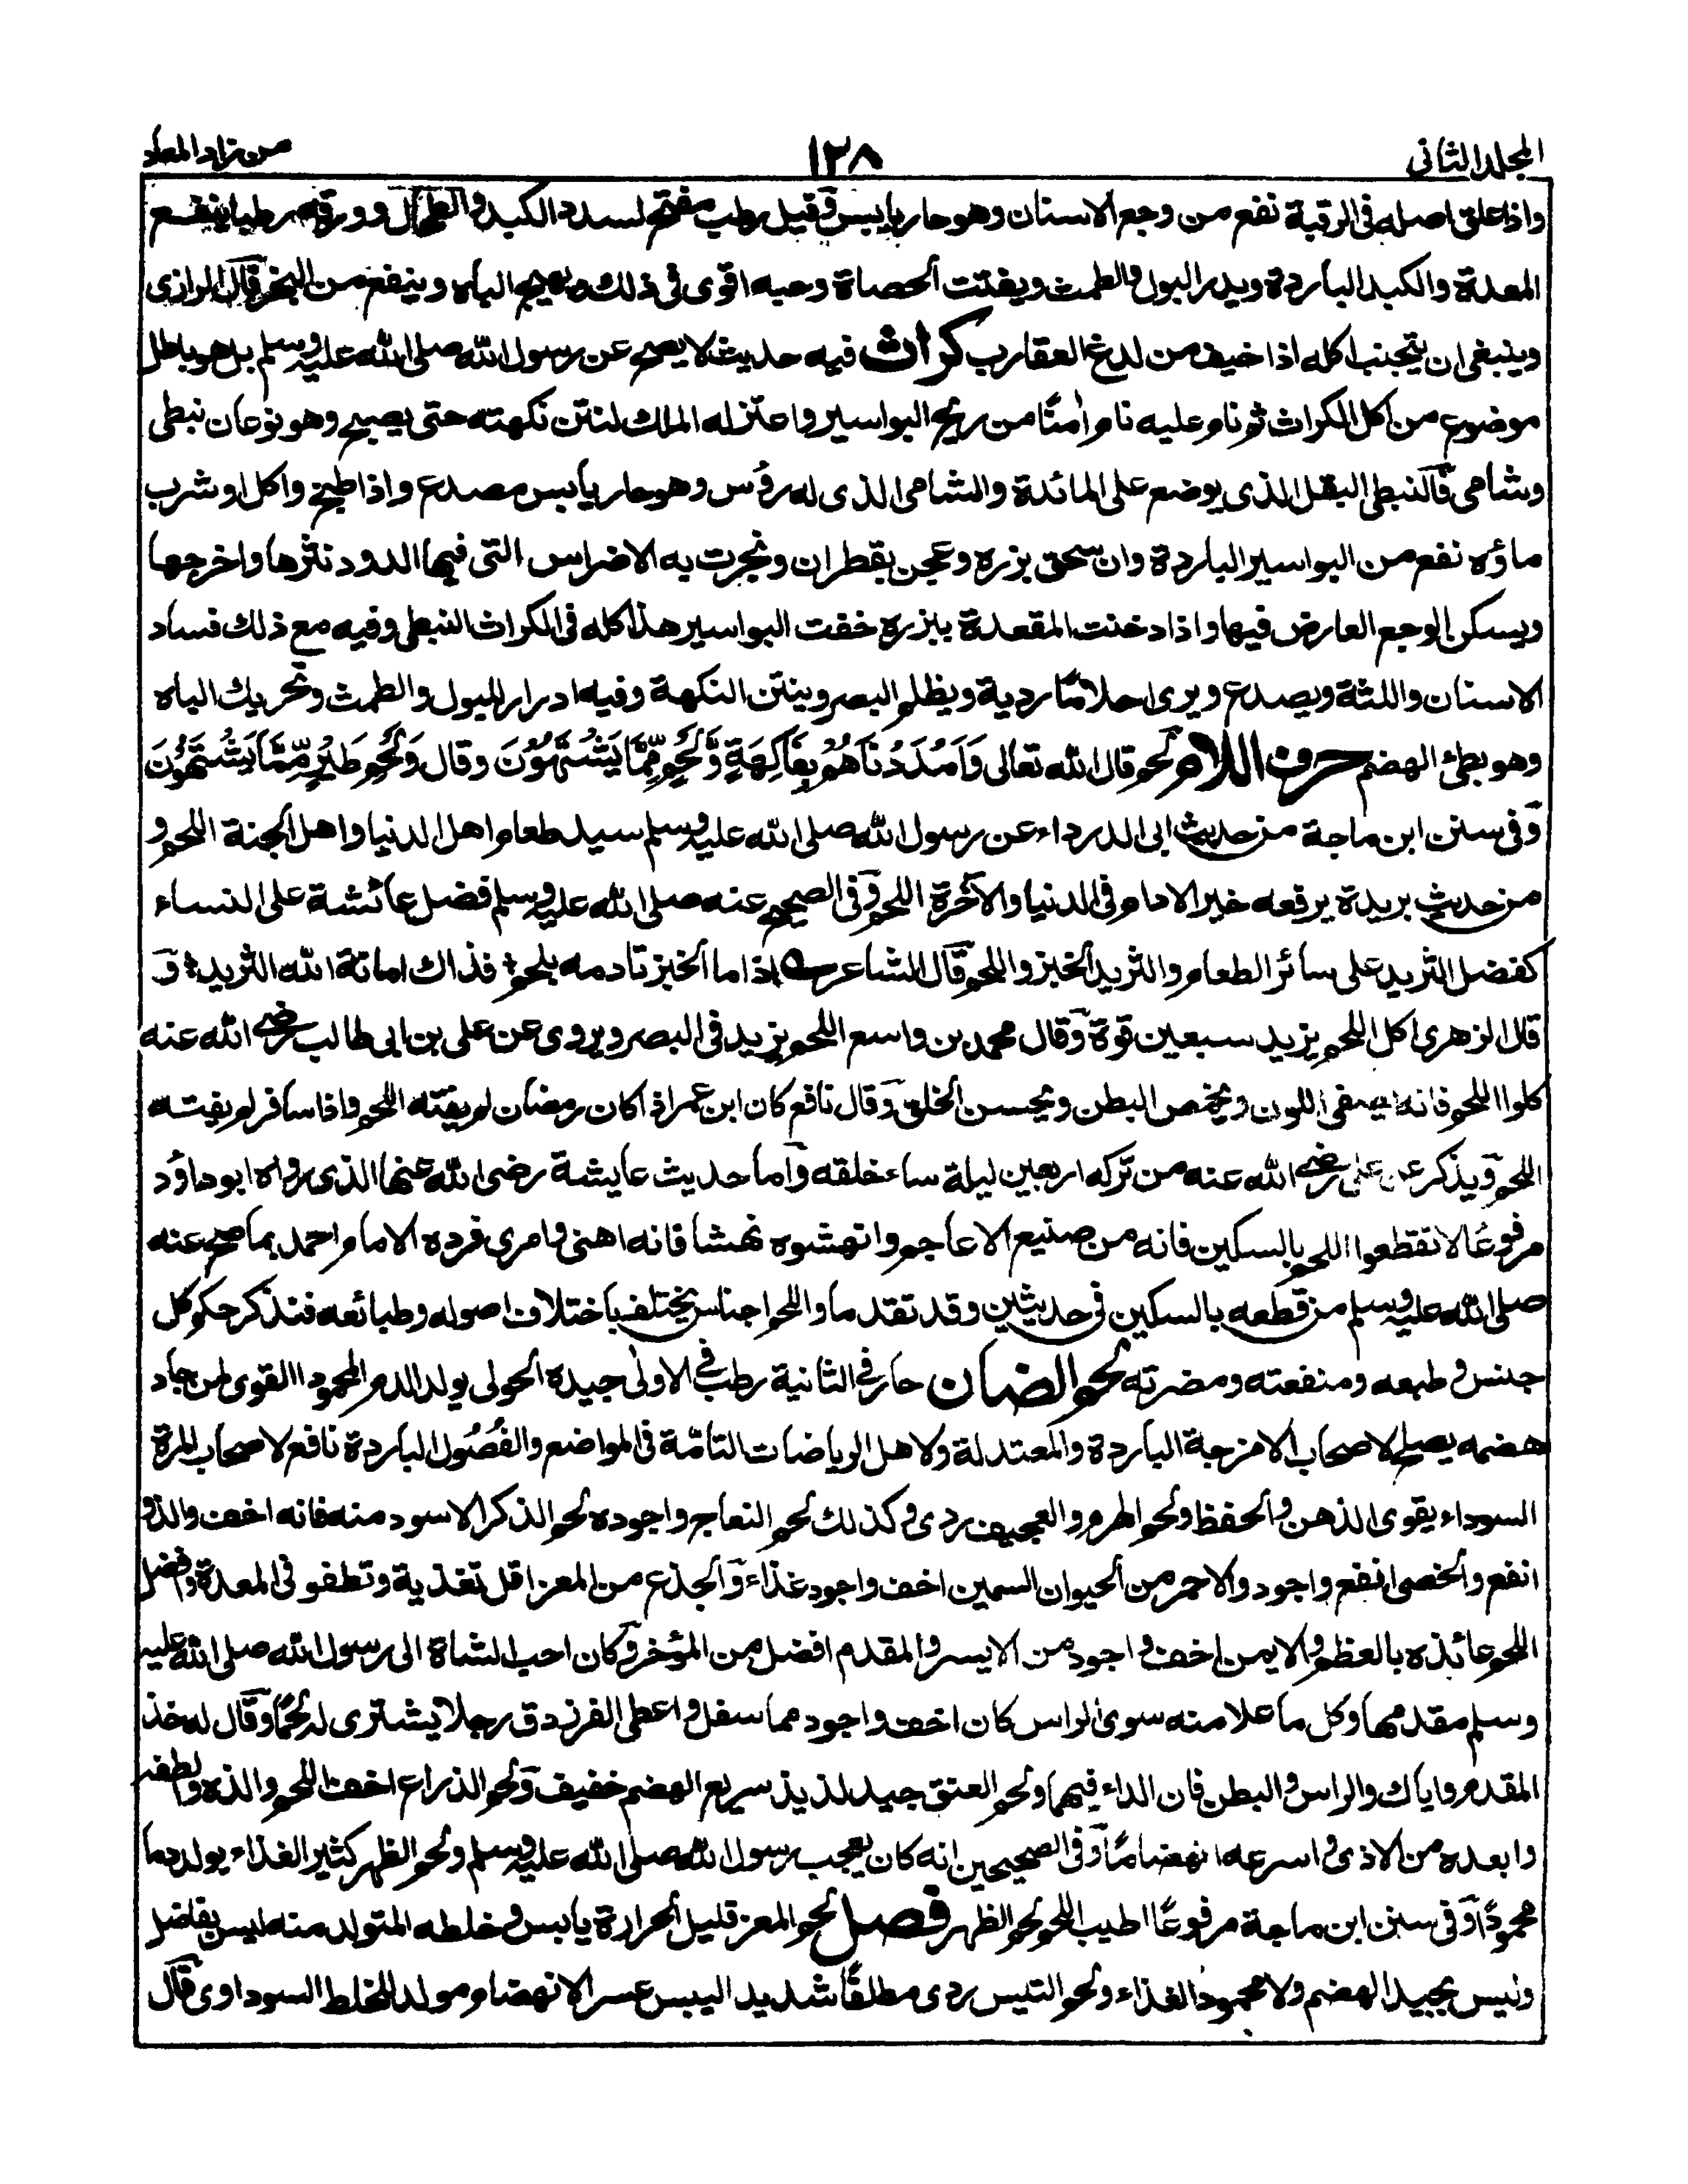 المجلد الثانى
١٣٨
من زاد المعاد
واذا علق اصله فى الرقبة نفع من وجع الاسنان وهو حار يابس وقيل رطب مفتح لسدد الكبد والطحال وورقه رطبا ينفع
المعدة والكبد الباردة ويدر البول والطمث ويفتت الحصاة وحبه اقوى فى ذلك ويهيج الباه وينفع من البخر قال الرازى
وينبغى ان يتجنب اكله اذا خيف من لدغ العقارب كراث فيه حديث لا يصح عن رسول الله صلى الله عليه وسلم بل هو باطل
موضوع من اكل الكراث ثم نام عليه نام اٰمنًا من ريح البواسير واعتزله الملك لنتن نكهته حتى يصبح وهو نوعان نبطى
وشامى فالنبطى البقل الذى يوضع على المائدة والشامى الذى له رؤس وهو حار يابس مصدع واذا طبخ واكل او شرب
ماؤه نفع من البواسير الباردة وان سحق بزره وعجن بقطران وبخرت به الاضراس التى فيها الدود نثرها واخرجها
ويسكن الوجع العارض فيها واذا دخنت المقعدة ببزره خفت البواسير هذا كله فى الكراث النبطى وفيه مع ذلك فساد
الاسنان واللثة ويصدع ويرى احلامًا ردية ويظلم البصر وينتن النكهة وفيه ادرار للبول والطمث وتحريك الباه
وهو بطئ الهضم حرف اللام لحم قال الله تعالى وَاَمْدَدْنَاهُمْ بِفَاكِهَةٍ وَّلَحْمٍ مِّمَّا يَشْتَهُوْنَ وقال وَلَحْمِ طَيْرٍ مِّمَّا يَشْتَهُوْنَ
وفى سنن ابن ماجة من حديث ابى الدرداء عن رسول الله صلى الله عليه وسلم سيد طعام اهل الدنيا واهل الجنة اللحم و
من حديث بريدة يرفعه خير الادام فى الدنيا والآخرة اللحم وفى الصحيح عنه صلى الله عليه وسلم فضل عائشة على النساء
كفضل الثريد على سائر الطعام والثريد الخبز واللحم قال الشاعر اذا ما الخبز تادمه بلحم فذاك امانة الله الثريد و
قال الزهرى اكل اللحم يزيد سبعين قوة وقال محمد بن واسع اللحم يزيد فى البصر ويروى عن على بن ابى طالب رضى الله عنه
كلوا اللحم فانه يصفى اللون ويخمص البطن ويحسن الخلق وقال نافع كان ابن عمر اذا كان رمضان لم يفته اللحم واذا سافر لم يفته
اللحم ويذكر عن على رضى الله عنه من تركه اربعين ليلة ساء خلقه واما حديث عايشة رضى الله عنها الذى رواه ابو داؤد
مرفوعًا لا تقطعوا اللحم بالسكين فانه من صنيع الاعاجم وانهشوه نهشا فانه اهنى وامرى فرده الامام احمد بما صح عنه
صلى الله عليه وسلم من قطعه بالسكين فى حديثين وقد تقدما واللحم اجناس يختلف باختلاف اصوله وطبائعه فنذكر حكم كل
جنس وطبعه ومنفعته ومضرته لحم الضان حار فى الثانية رطب فى الاولى جيده الحولى يولد الدم المحمود القوى لمن جاد
هضمه يصلح لاصحاب الامزجة الباردة والمعتدلة ولاهل الرياضات التامّة فى المواضع والفُصُول الباردة نافع لاصحاب المرة
السوداء يقوى الذهن والحفظ ولحم الهرم والعجيف ردى وكذلك لحم النعاج واجوده لحم الذكر الاسود منه فانه اخف والذ و
انفع والخصى انفع واجود والاحمر من الحيوان السمين اخف واجود غذاء والجذع من المعز اقل تغذية وتطفو فى المعدة وافضل
اللحم عائذه بالعظم والايمن اخف واجود من الايسر والمقدم افضل من المؤخر وكان احب الشاة الى رسول الله صلى الله عليه
وسلم مقدمها وكل ما علا منه سوى الراس كان اخف واجود مما سفل واعطى الفرزدق رجلا يشترى له لحمًا وقال له خذ
المقدم واياك والراس والبطن فان الداء فيهما ولحم العنق جيد لذيذ سريع الهضم خفيف ولحم الذراع اخف اللحم والذه والطفه
وابعده من الاذى واسرعه انهضامًا وفى الصحيحين انه كان يعجب رسول الله صلى الله عليه وسلم ولحم الظهر كثير الغذاء يولد دما
محمودًا وفى سنن ابن ماجة مرفوعًا اطيب اللحم لحم الظهر فصل لحم المعز قليل الحرارة يابس وخلطه المتولد منه ليس بفاضل
وليس بجيد الهضم ولا محمود الغذاء ولحم التيس ردى مطلقًا شديد اليبس عسر الانهضام مولد للخلط السوداوى قال